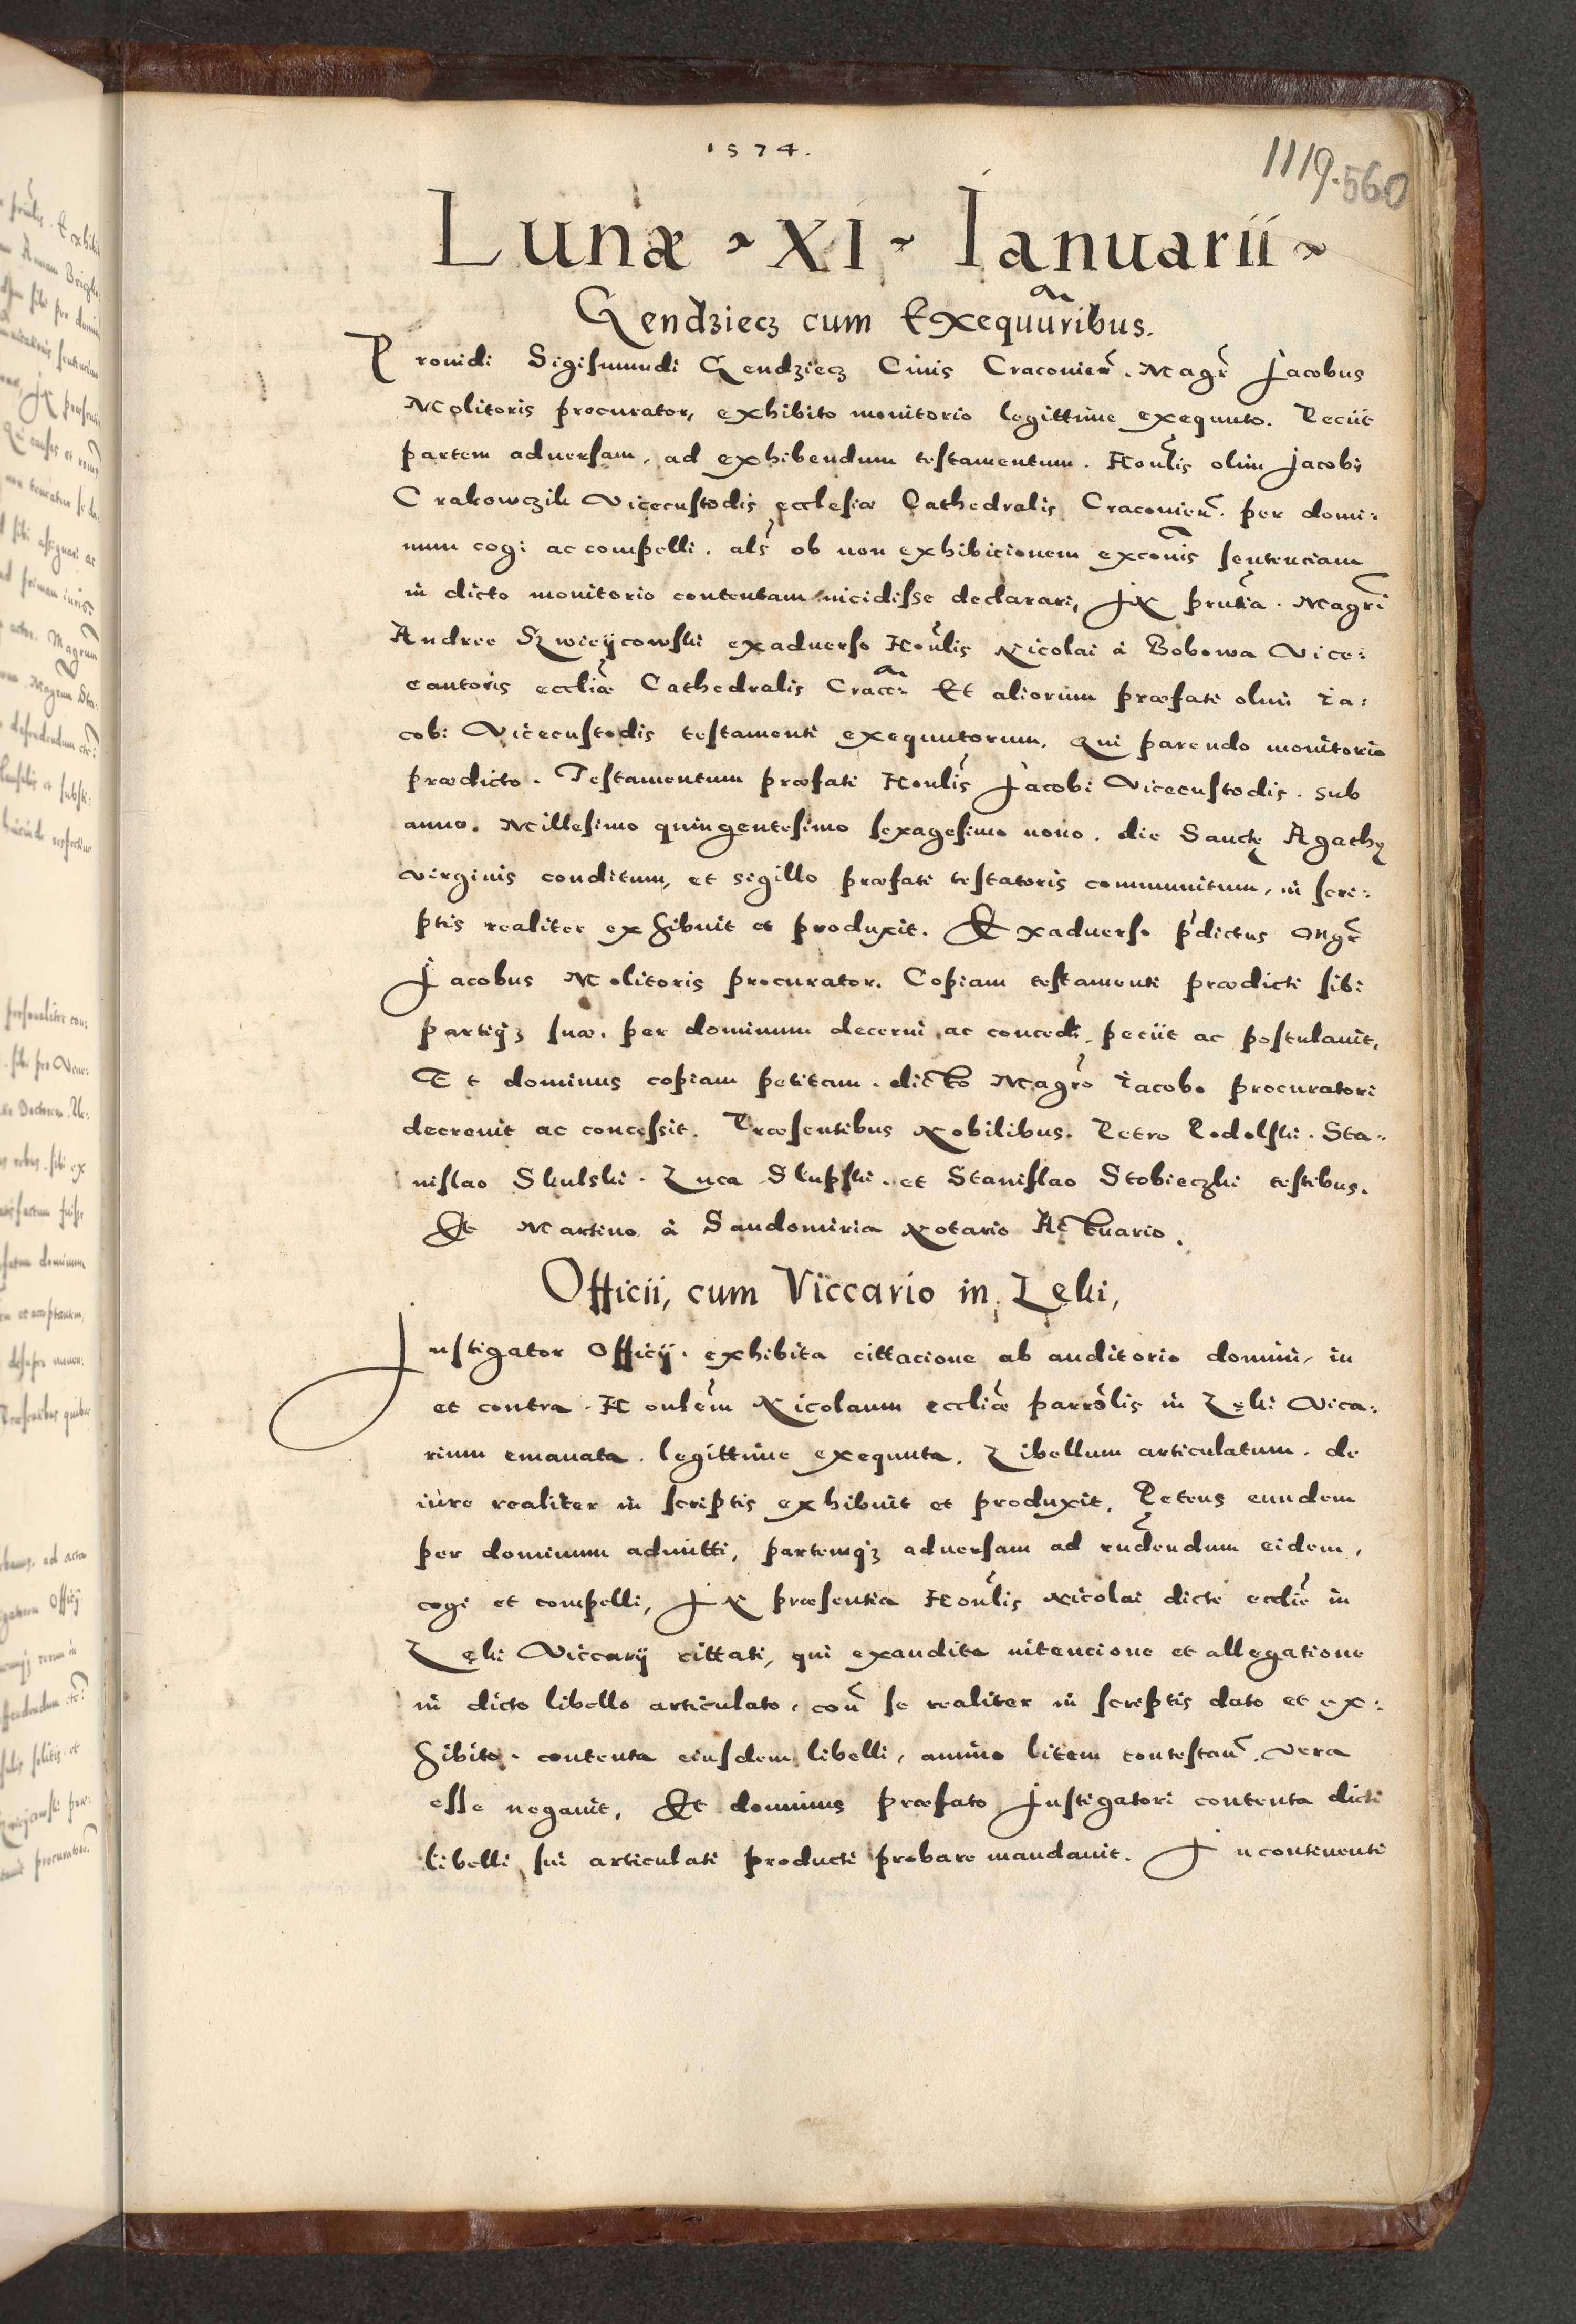 1574.
1119. 560
Lunæ XI Ianuarii
Gendziecz cum Exequutũribus.
Prouidi Sigismundi Gendziecz Ciuis Cracouieñ. Magr̃ Jacobus
Molitoris procurator, exhibito monitorio legittime exequuto. Peciit
partem aduersam, ad exhibendum testamentum. Honl̃is olim Jacobi
Crakowczik Vicecustodis ecclesiæ Cathedralis Cracouieñ. per domi:
num cogi ac compelli. als̃ ob non exhibicionem excõnis sentenciam
in dicto monitorio contentam incidisse declarari, IN pñtia. Magr̃i
Andree Kwieÿcowski exaduerso Honl̃is Nicolai à Bobowa Vice:
cantoris eccliæ Cathedralis Cracc: Et aliorum præfati olim Ia:
cobi Vicecustodis testamenti exequutorum, qui parendo monitorio
prædicto. Testamentum præfati Honl̃is Jacobi Vicecustodis. sub
anno. Millesimo quingentesimo sexagesimo nono. die Sanctę Agathę
virginis conditum, et sigillo præfati testatoris communitum, in scri:
ptis realiter exhibuit et produxit. Exaduerso p̃dictus Mgr̃
Jacobus Molitoris procurator. Copiam testamenti prædicti sibi
partiq3 suæ. per dominum decerni ac concedi, peciit ac postulauit,
Et dominus copiam petitam. dicto Magr̃o Iacobo procuratori
decreuit ac concessit. Præsentibus Nobilibus. Petro Podolski. Sta:
nislao Skulski. Luca Slupski. et Stanislao Stobieczki testibus.
Et Martino à Sandomiria Notario Actuario.
Officii, cum Viccario in Lęki,
Instigator Officÿ. exhibita cittacione ab auditorio domini, in
et contra. Honl̃em Nicolaum eccliæ parrõlis in Lęki Vica:
rium emanata. legittime exequuta. Libellum articulatum. de
iure realiter in scriptis exhibuit et produxit, Petens eundem
per dominum admitti, partemq3 aduersam ad rñdendum eidem,
cogi et compelli, IN præsentia Honl̃is Nicolai dicte ecclie in
Lęki Viccarÿ cittati, qui exaudita intencione et allegatione
in dicto libello articulato, coñ se realiter in scriptis dato et ex:
hibito. contenta eiusdem libelli, animo litem contestañ. vera
esse negauit, Et dominus præfato Justigatori contenta dicti
libelli sui articulati producti probare mandauit. Incontinenti